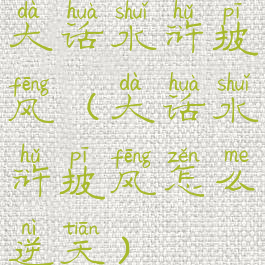 dà huà shuǐ hǔ pī
大话水浒披
fēng dà huà shuǐ
风（大话水
hǔ pī fēng zěn me
浒披风怎么
nì tiān
逆天）